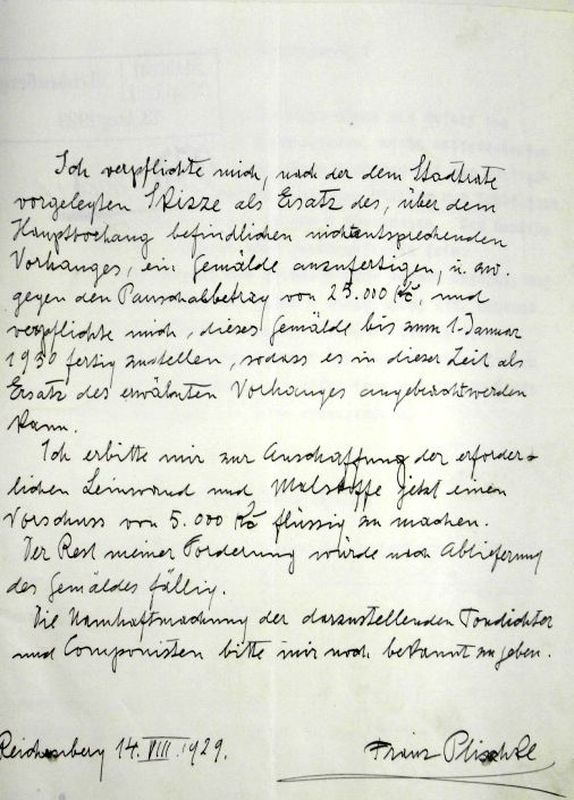 Ich verpflichte mich, nach der dem Stadtrate
vorgelegten Skizze als Ersatz des, über dem
Hauptvorhang befindlichen nichtentsprechenden
Vorhanges, ein Gemälde anzufertigen, u. zw.
gegen den Pauschalbetrag von 25.000 Kč, und
verpflichte mich, dieses Gemälde bis zum 1. Januar
1930 fertig zustellen, sodass es in dieser Zeit als
Ersatz des erwähnten Vorhanges angebracht werden
kann.
Ich erbitte mir zur Anschaffung der erforder-
lichen Leinwand und Malstoffe jetzt einen
Vorschuss von 5.000 Kč flüssig zu machen.
Der Rest meiner Forderung würde nach Ablieferung
des Gemäldes fällig.
Die Namhaftmachung der darzustellenden Tondichter
und Componisten bitte mir noch bekannt zu geben.
Reichenberg 14. VIII. 1929.
Franz Plischke